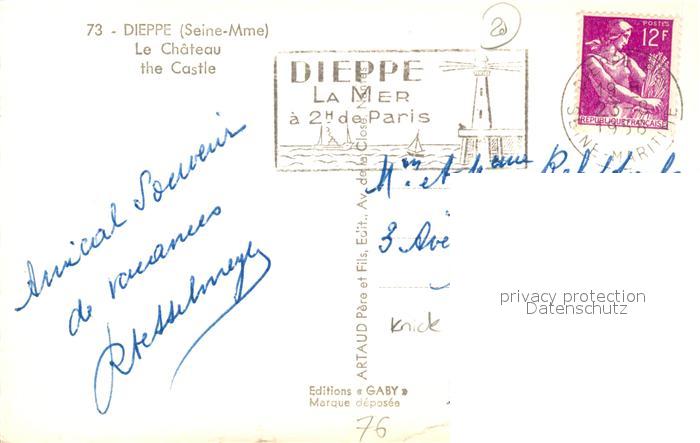 73 - DIEPPE (Seine-Mme)
Le Château
the Castle
DIEPPE
LA MER
à 2H de Paris
POSTES
12F
REPUBLIQUE FRANÇAISE
SEINE MARITIME
Amical Souvenir
de vacances
Mm et
3 Ave
ARTAUD Père et Fils, Edit., Av. de la Close,
knick
privacy protection
Datenschutz
Editions « GABY »
Marque déposée
76